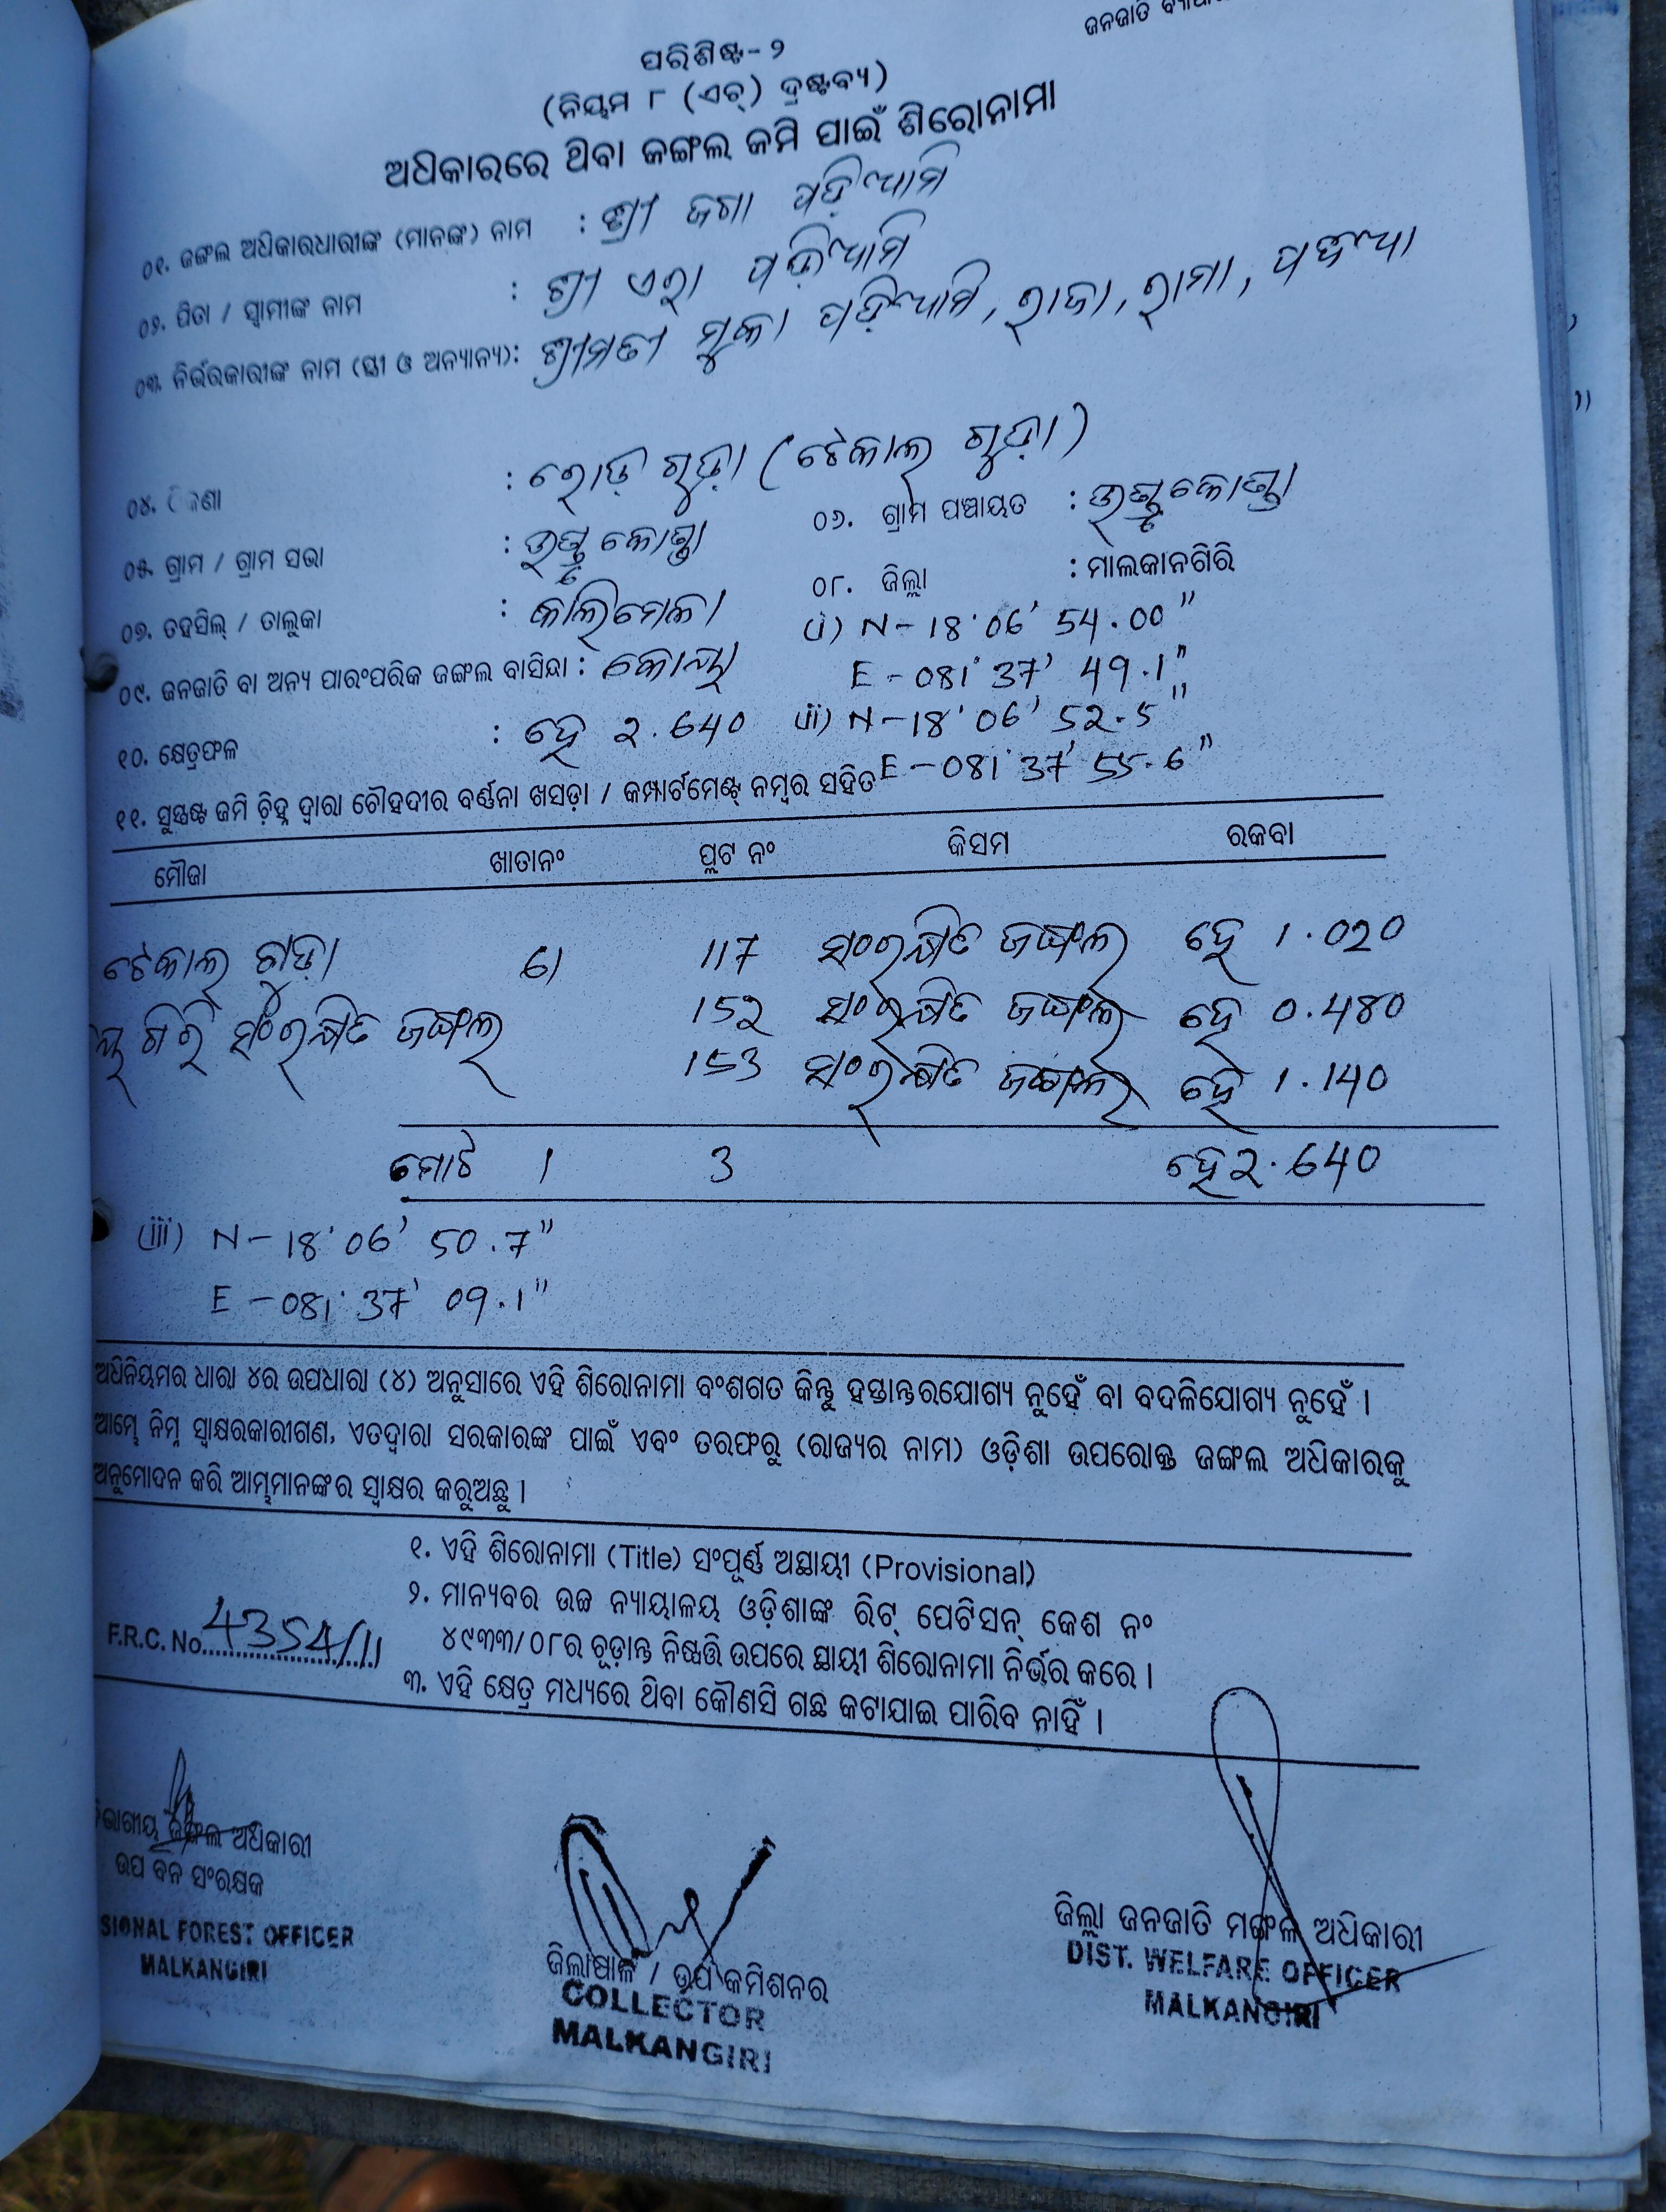 ଜନଜାତି
ପରିଶିଷ୍ଟ-୨
(ନିୟମ ୮ (ଏଚ୍) ଦ୍ରଷ୍ଟବ୍ୟ)
ଅଧିକାରରେ ଥିବା ଜଙ୍ଗଲ ଜମି ପାଇଁ ଶିରୋନାମା
୦୧. ଜଙ୍ଗଲ ଅଧିକାରଧାରୀଙ୍କ (ମାନଙ୍କ) ନାମ : ଶ୍ରୀ ଜଗା ପଡ଼ିଆମି
୦୨. ପିତା / ସ୍ୱାମୀଙ୍କ ନାମ : ଶ୍ରୀ ଏରା ପଡ଼ିଆମି
୦୩. ନିର୍ଭରକାରୀଙ୍କ ନାମ (ସ୍ତ୍ରୀ ଓ ଅନ୍ୟାନ୍ୟ): ଶ୍ରୀମତୀ ମୁକା ପଡ଼ିଆମି, ରାଜା, ରାମା,
୦୪. : ରୋଡ଼ ଗୁଡ଼ା (ଟେକାଲ ଗୁଡ଼ା)
୦୫. ଗ୍ରାମ / ଗ୍ରାମ ସଭା : ୦୬. ଗ୍ରାମ ପଞ୍ଚାୟତ :
୦୭. ତହସିଲ୍ / ତାଲୁକା : କାଲିମେଳା ୦୮. ଜିଲ୍ଲା : ମାଲକାନଗିରି
(i) N-18° 06' 54.00"
୦୯. ଜନଜାତି ବା ଅନ୍ୟ ପାରଂପରିକ ଜଙ୍ଗଲ ବାସିନ୍ଦା : କୋୟା E-081° 37' 49.1"
୧୦. କ୍ଷେତ୍ରଫଳ : ହେ ୨.640 (ii) N-18° 06' 52.5"
E-081° 37' 55.6"
୧୧. ସୁସ୍ପଷ୍ଟ ଜମି ଚିହ୍ନ ଦ୍ୱାରା ଚୌହଦୀର ବର୍ଣ୍ଣନା ଖସଡ଼ା / କମ୍ପାର୍ଟମେଣ୍ଟ୍ ନମ୍ବର ସହିତ
ମୌଜା ଖାତାନଂ ପ୍ଲଟ ନଂ କିସମ ରକବା
ଟେକାଲ ଗୁଡ଼ା 61 117 ସଂରକ୍ଷିତ ଜଙ୍ଗଲ ହେ 1.020
ଗିରି ସଂରକ୍ଷିତ ଜଙ୍ଗଲ 152 ସଂରକ୍ଷିତ ଜଙ୍ଗଲ ହେ 0.480
153 ସଂରକ୍ଷିତ ଜଙ୍ଗଲ ହେ 1.140
ମୋଟ 1 3 ହେ ୨.640
(iii) N-18° 06' 50.7"
E-081° 37' 09.1"
ଅଧିନିୟମର ଧାରା ୪ର ଉପଧାରା (୪) ଅନୁସାରେ ଏହି ଶିରୋନାମା ବଂଶଗତ କିନ୍ତୁ ହସ୍ତାନ୍ତରଯୋଗ୍ୟ ନୁହେଁ ବା ବଦଳିଯୋଗ୍ୟ ନୁହେଁ ।
ଆମ୍ଭେ ନିମ୍ନ ସ୍ୱାକ୍ଷରକାରୀଗଣ, ଏତଦ୍ୱାରା ସରକାରଙ୍କ ପାଇଁ ଏବଂ ତରଫରୁ (ରାଜ୍ୟର ନାମ) ଓଡ଼ିଶା ଉପରୋକ୍ତ ଜଙ୍ଗଲ ଅଧିକାରକୁ
ଅନୁମୋଦନ କରି ଆମ୍ଭମାନଙ୍କର ସ୍ୱାକ୍ଷର କରୁଅଛୁ ।
୧. ଏହି ଶିରୋନାମା (Title) ସଂପୂର୍ଣ୍ଣ ଅସ୍ଥାୟୀ (Provisional)
୨. ମାନ୍ୟବର ଉଚ୍ଚ ନ୍ୟାୟାଳୟ ଓଡ଼ିଶାଙ୍କ ରିଟ୍ ପେଟିସନ୍ କେଶ ନଂ
୪୯୩୩/୦୮ର ଚୂଡ଼ାନ୍ତ ନିଷ୍ପତ୍ତି ଉପରେ ସ୍ଥାୟୀ ଶିରୋନାମା ନିର୍ଭର କରେ ।
F.R.C. No. 4354/11
୩. ଏହି କ୍ଷେତ୍ର ମଧ୍ୟରେ ଥିବା କୌଣସି ଗଛ କଟାଯାଇ ପାରିବ ନାହିଁ ।
ଜଙ୍ଗଲ ଅଧିକାରୀ
ଉପ ବନ ସଂରକ୍ଷକ
SIONAL FOREST OFFICER
MALKANGIRI
ଜିଲ୍ଲାପାଳ / ଉପ କମିଶନର
COLLECTOR
MALKANGIRI
ଜିଲ୍ଲା ଜନଜାତି ମଙ୍ଗଳ ଅଧିକାରୀ
DIST. WELFARE OFFICER
MALKANGIRI